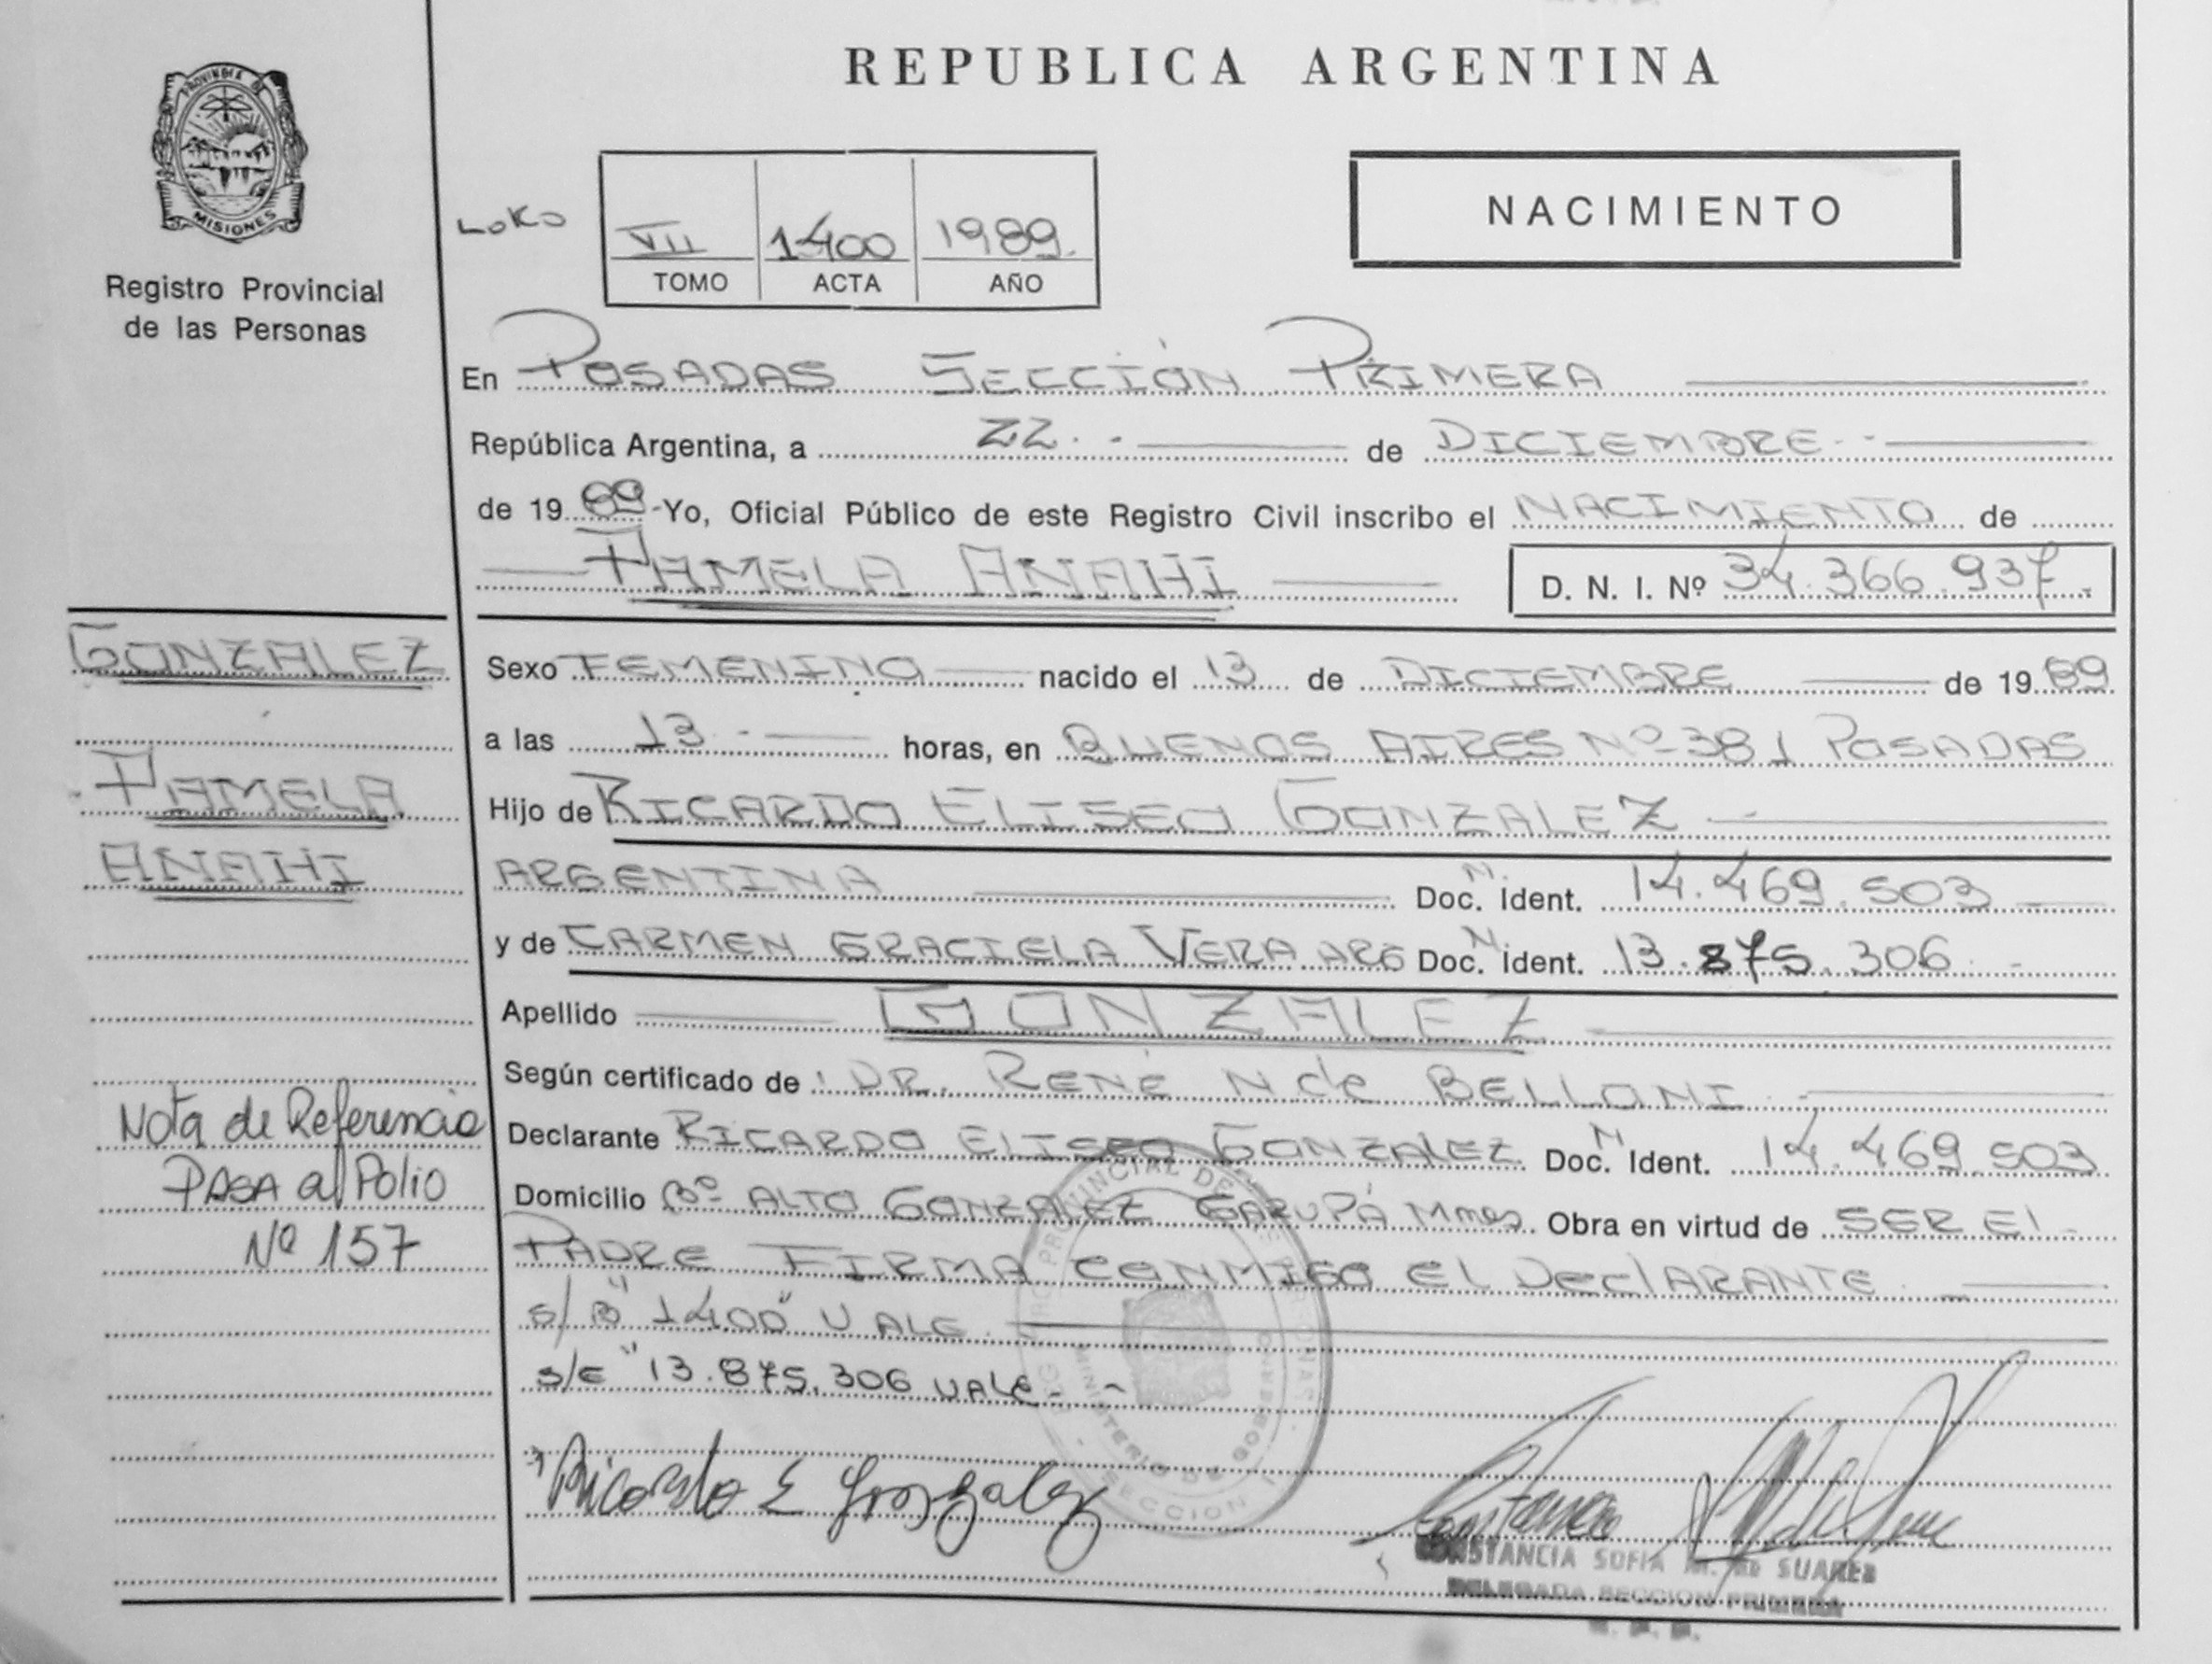 PROVINCIA DE
MISIONES
Registro Provincial
de las Personas
REPUBLICA ARGENTINA
NACIMIENTO
LOKO
VII 1400 1989.
TOMO ACTA AÑO
En POSADAS SECCIÓN PRIMERA
República Argentina, a 22. de DICIEMBRE
de 19 89 - Yo, Oficial Público de este Registro Civil inscribo el NACIMIENTO de
PAMELA ANAHI D. N. I. Nº 34.366.937.
GONZALEZ
PAMELA
ANAHI
Sexo FEMENINO nacido el 13 de DICIEMBRE de 19 89
a las 13 horas, en BUENOS AIRES Nº 381 POSADAS
Hijo de RICARDO ELISEO GONZALEZ
ARGENTINA Doc. N. Ident. 14.469.503
y de CARMEN GRACIELA VERA ARG Doc. N. Ident. 13.875.306
Apellido GONZALEZ
Según certificado de DR. RENE N de BELLONI
Declarante RICARDO ELISEO GONZALEZ Doc. N Ident. 14.469.503
Domicilio Bº ALTO GONZALEZ GARUPÁ Mnes Obra en virtud de SER El
PADRE FIRMA CONMIGO EL DEClARANTE
s/B "1400" VALE
s/E "13.875.306 VALE
Nota de Referencia
PASA al Folio
Nº 157
Ricardo E Gonzalez
REG PROVINCIAL DE LAS PERSONAS
MINISTERIO DE GOBIERNO
SECCION
CONSTANCIA SOFIA M. de SUAREZ
DELEGADA SECCION PRIMERA
R. P. P.